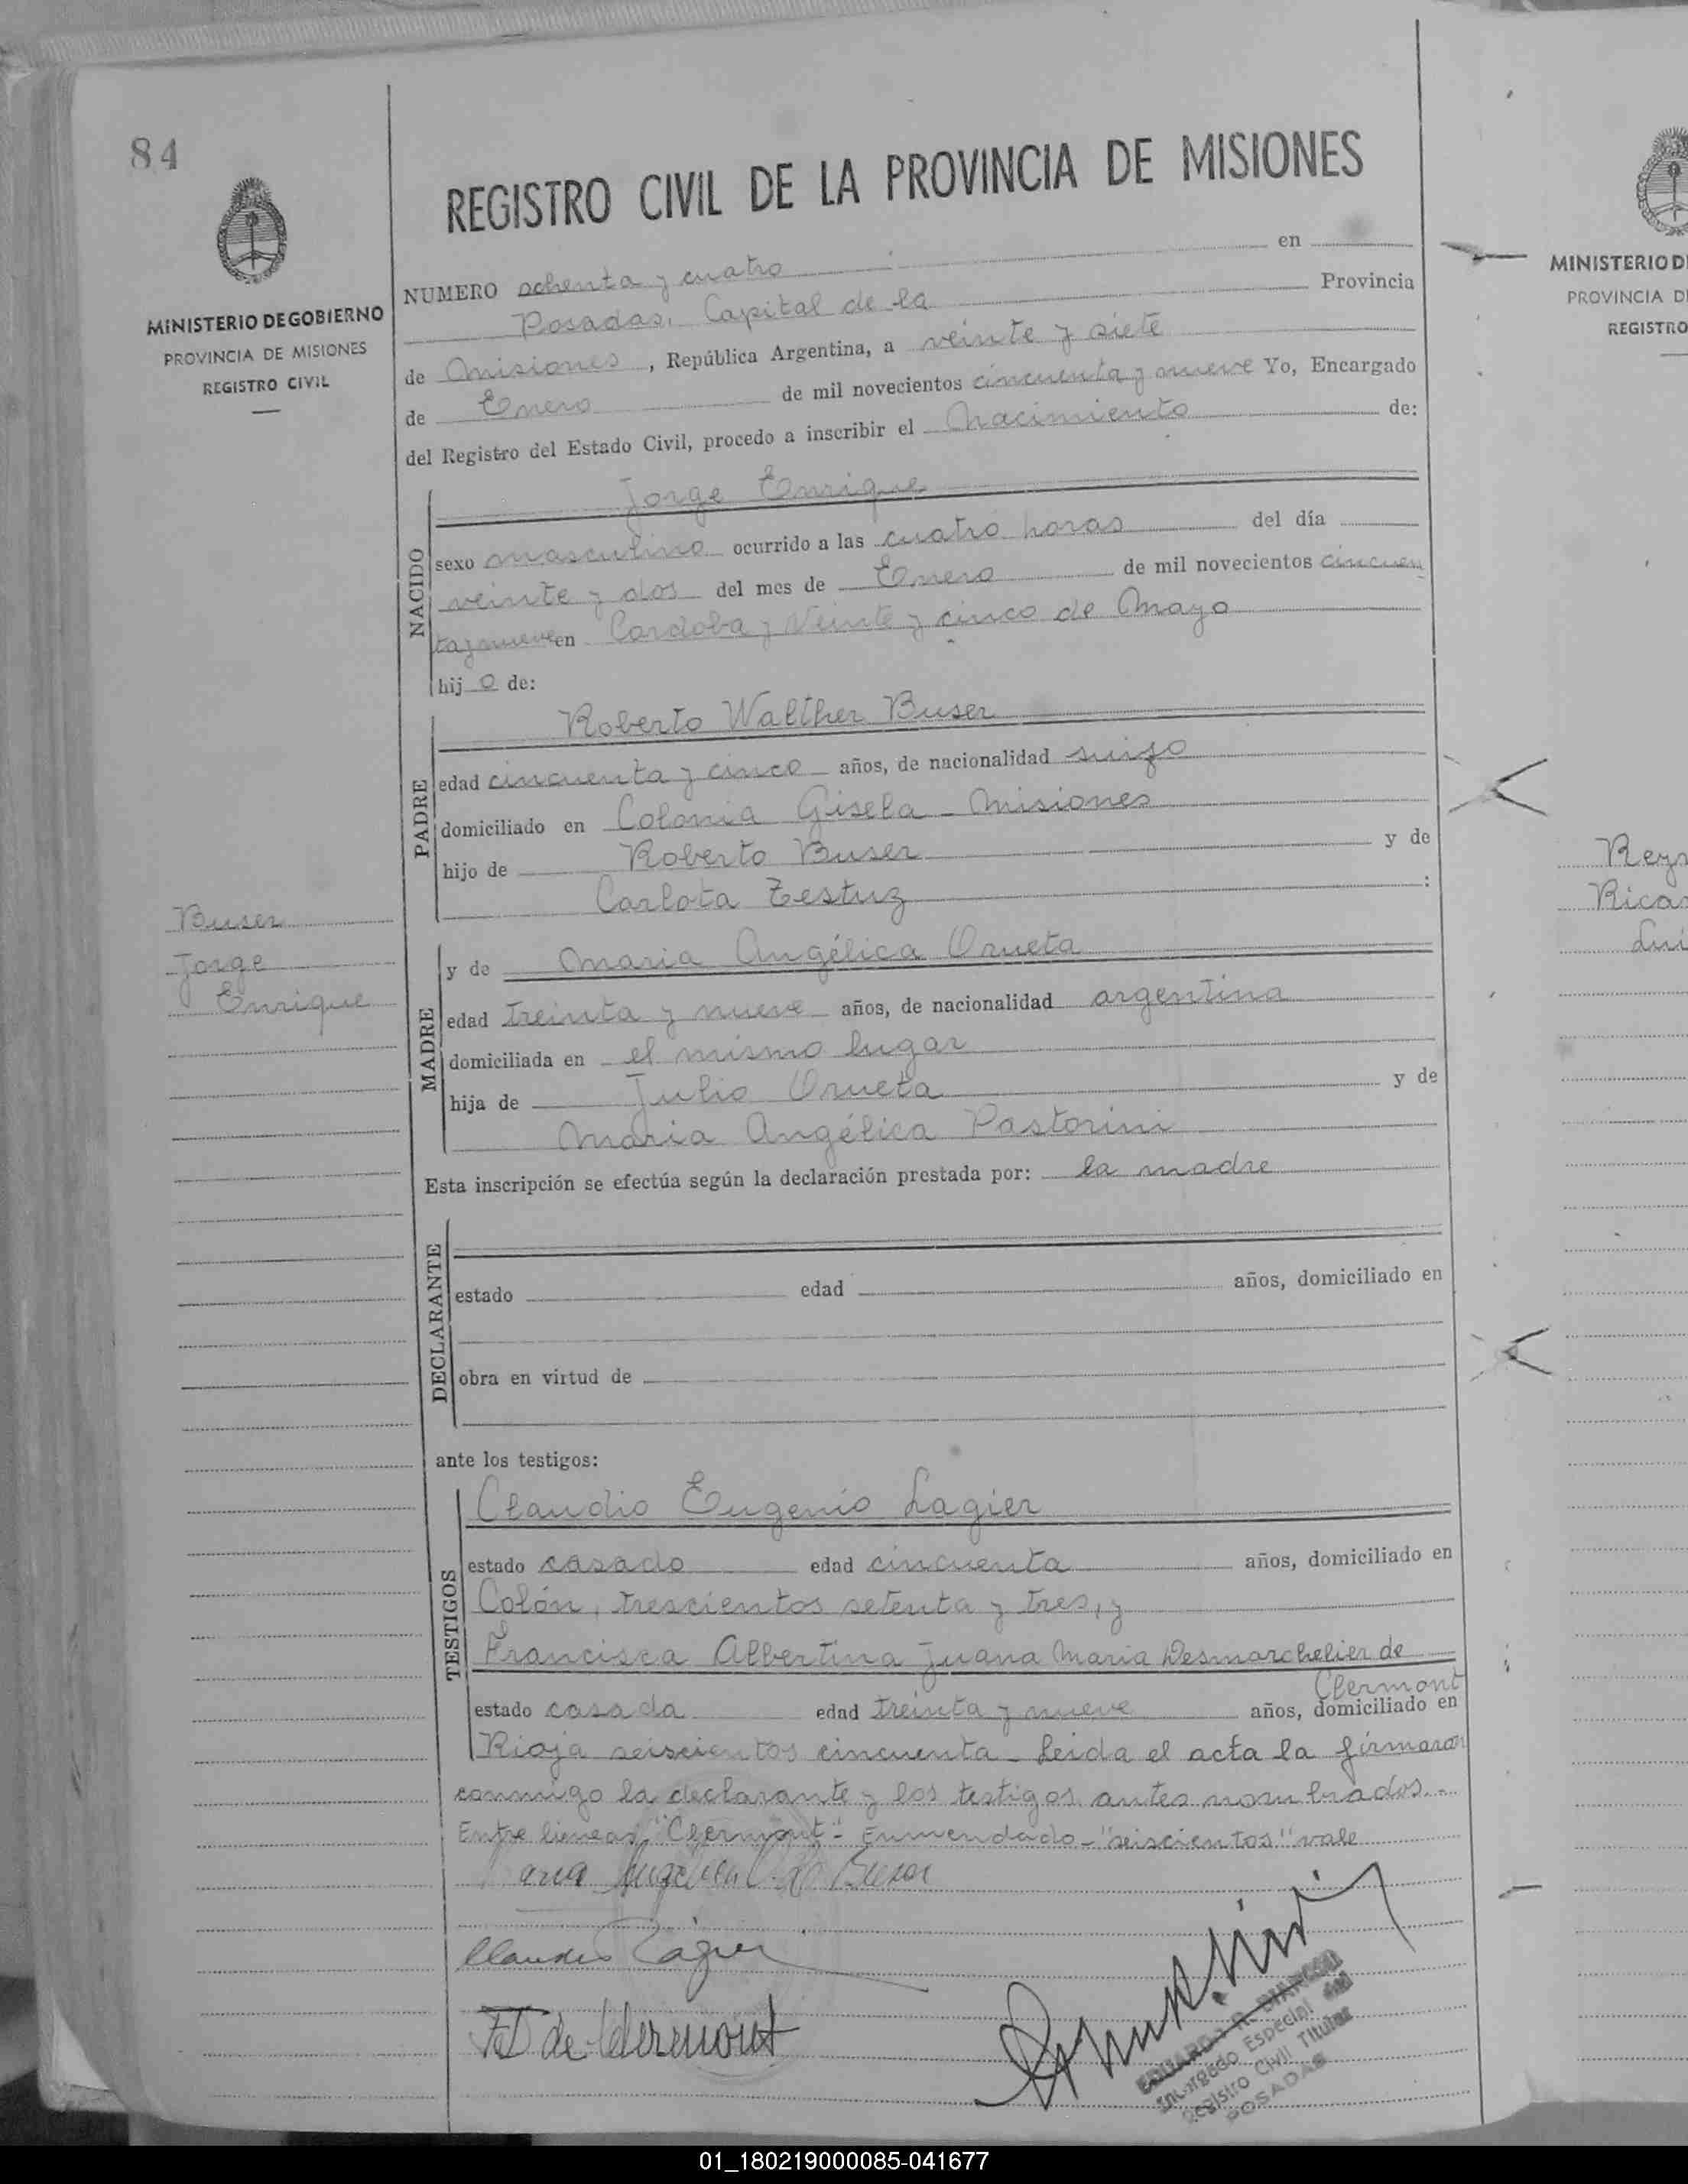 84
MINISTERIO DE GOBIERNO
PROVINCIA DE MISIONES
REGISTRO CIVIL
REGISTRO CIVIL DE LA PROVINCIA DE MISIONES
NUMERO ochenta y cuatro en
Posadas, Capital de la Provincia
de Misiones, República Argentina, a veinte y siete
de Enero de mil novecientos cincuenta y nueve Yo, Encargado
del Registro del Estado Civil, procedo a inscribir el Nacimiento de:
NACIDO
Jorge Enrique
sexo masculino ocurrido a las cuatro horas del día
veinte y dos del mes de Enero de mil novecientos cincuen
ta y nueve en Cordoba y Veinte y cinco de Mayo
hijo de:
PADRE
Roberto Walther Buser
edad cincuenta y cinco años, de nacionalidad suizo
domiciliado en Colonia Gisela - Misiones
hijo de Roberto Buser y de
Carlota Testuz :
Buser
Jorge
Enrique
MADRE
y de Maria Angélica Orueta
edad treinta y nueve años, de nacionalidad argentina
domiciliada en el mismo lugar
hija de Julio Orueta y de
Maria Angélica Pastorini
Esta inscripción se efectúa según la declaración prestada por: la madre
DECLARANTE
estado edad años, domiciliado en
obra en virtud de
ante los testigos:
TESTIGOS
Claudio Eugenio Lagier
estado casado edad cincuenta años, domiciliado en
Colón, trescientos setenta y tres, y
Francisca Albertina Juana Maria Desmarchelier de
Clermont
estado casada edad treinta y nueve años, domiciliado en
Rioja seiscientos cincuenta - Leida el acta la firmaron
conmigo la declarante y los testigos antes nombrados.-
Entre lineas "Clermont" - Enmendado - "seiscientos" vale
Claudio Lagier
FD de Clermont
EDUARDO R.
Encargado Especial del
Registro Civil Titular
POSADAS
MINISTERIO D
PROVINCIA D
REGISTRO
Reyn
Rica
Lui
01_180219000085-041677